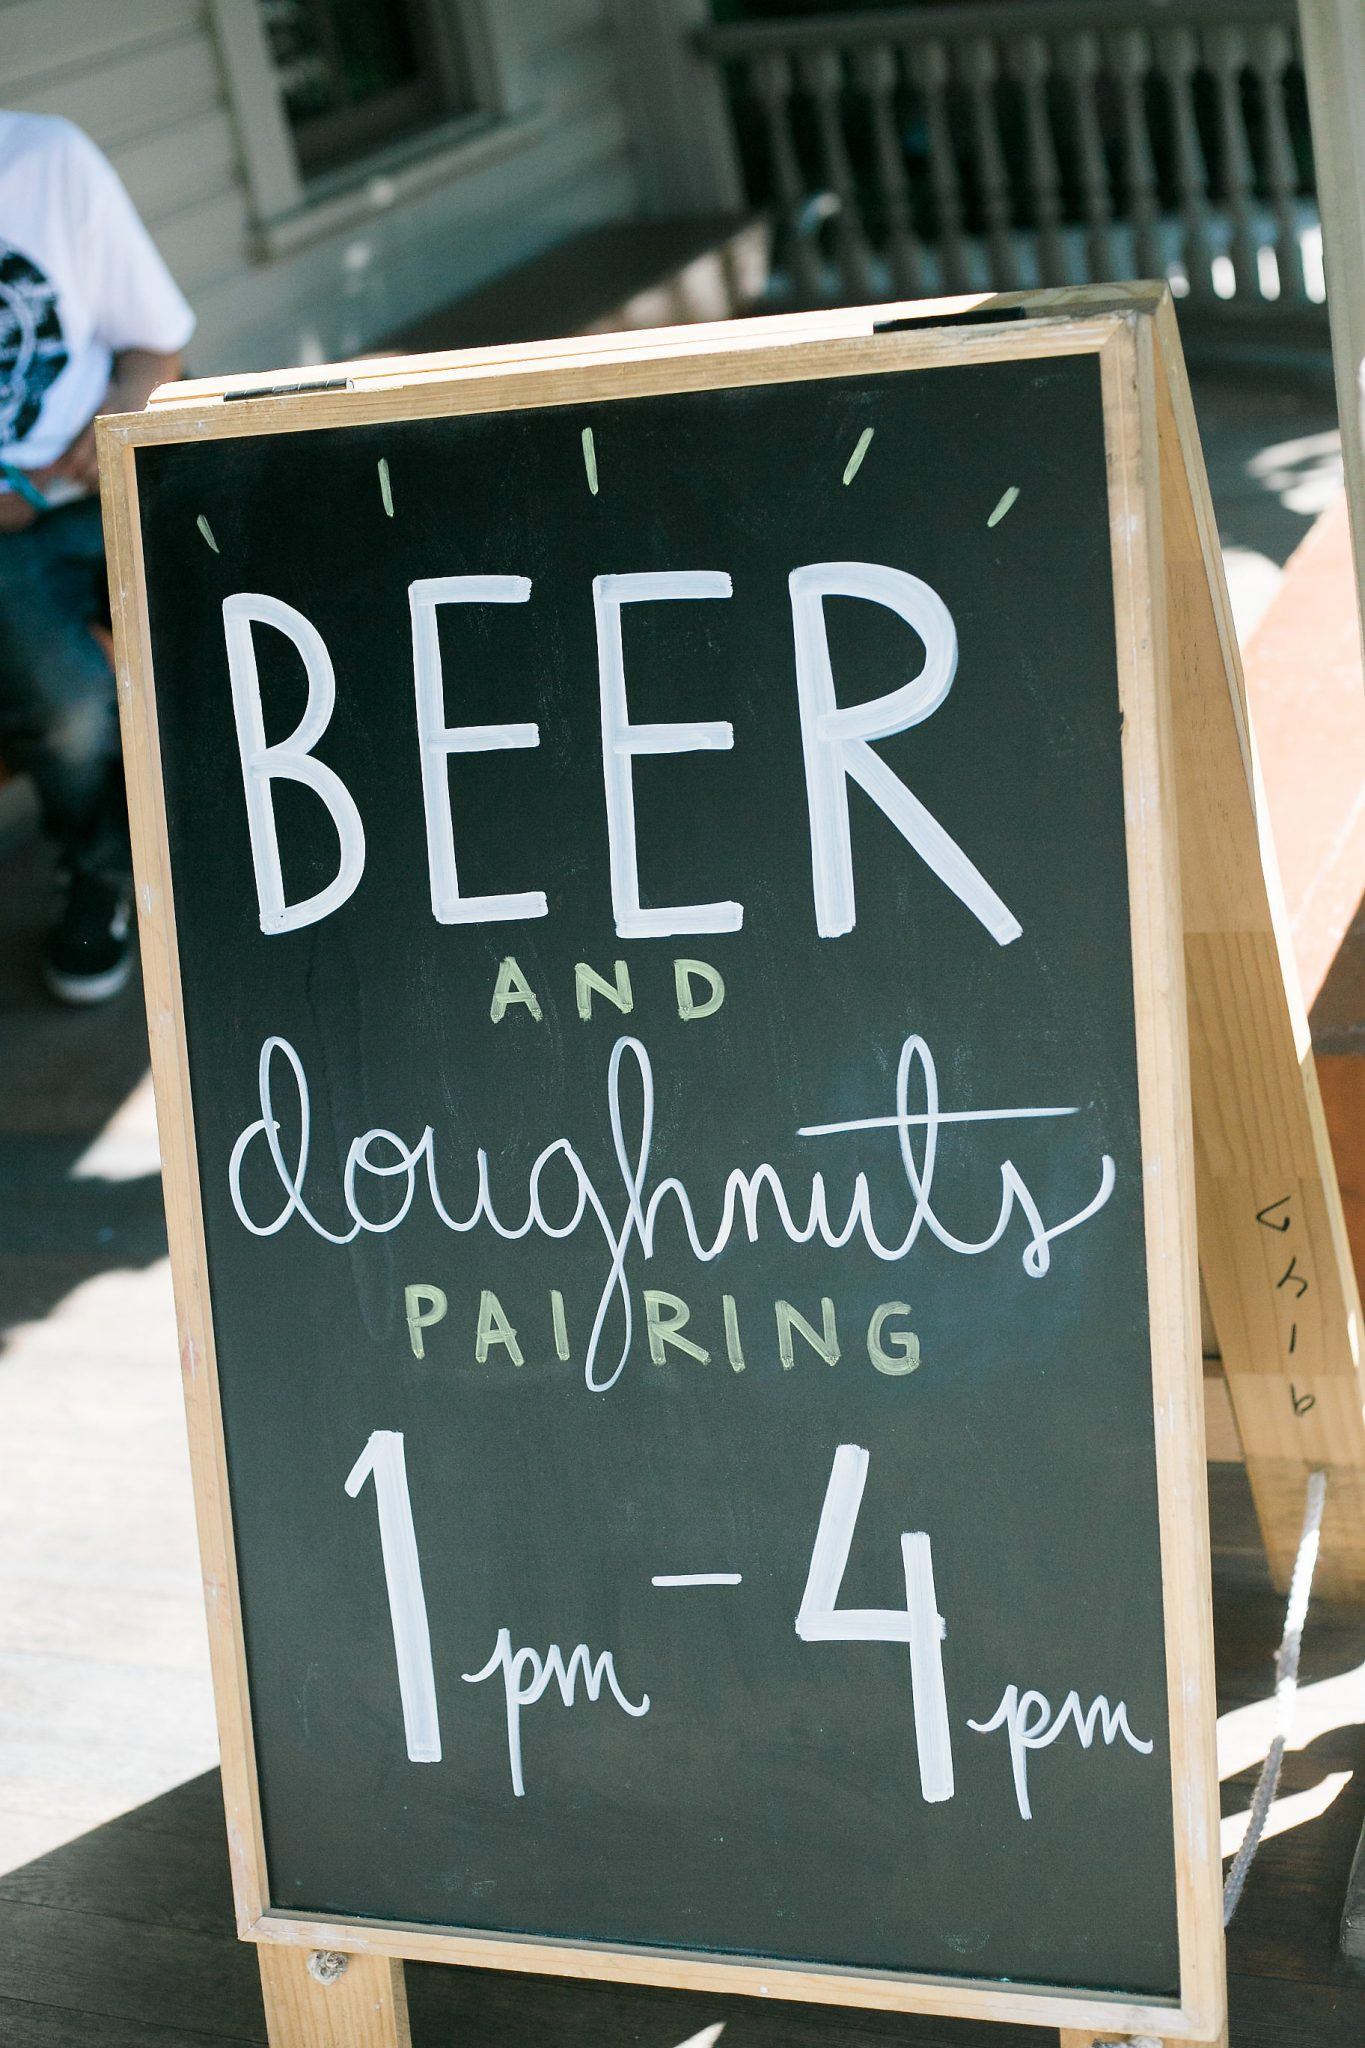 BEER
AND
doughnuts
PAIRING
1pm - 4pm